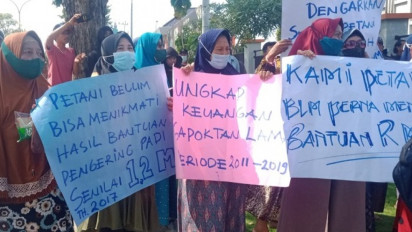 DENGARKAN
PETANI
PETANI BELUM
BISA MENIKMATI
HASIL BANTUAN
PENGERING PADI
SENILAI 1,2 M
TH. 2017
UNGKAP
KEUANGAN
GAPOKTAN LAMA
PERIODE 2011-2019
KAMI PETA
BLM PERNA
BANTUAN R